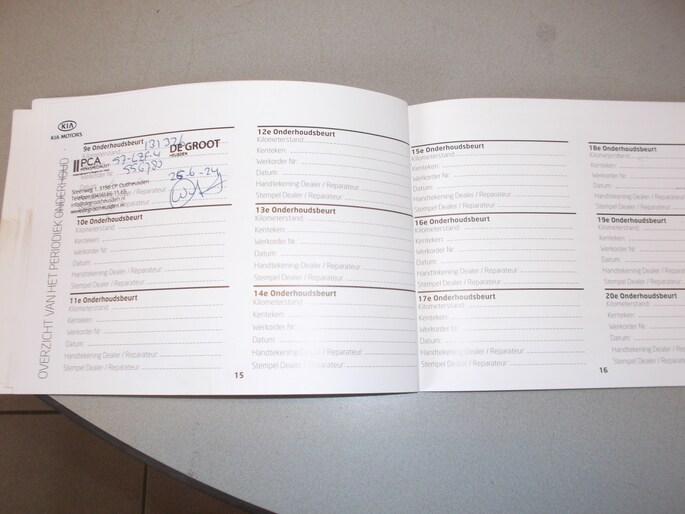 KIA
KIA MOTORS
OVERZICHT VAN HET PERIODIEK ONDERHOUD
9e Onderhoudsbeurt
Kilometerstand:
PCA
DE GROOT
HEUSDEN
25-6-24
Steenweg 1, 5156 CP Oudheusden
10e Onderhoudsbeurt
Kilometerstand:
Kenteken:
Werkorder Nr:
Datum:
Handtekening Dealer / Reparateur:
Stempel Dealer / Reparateur:
11e Onderhoudsbeurt
Kilometerstand:
Kenteken:
Werkorder Nr:
Datum:
Handtekening Dealer / Reparateur:
Stempel Dealer / Reparateur:
12e Onderhoudsbeurt
Kilometerstand:
Kenteken:
Werkorder Nr:
Datum:
Handtekening Dealer / Reparateur:
Stempel Dealer / Reparateur:
13e Onderhoudsbeurt
Kilometerstand:
Kenteken:
Werkorder Nr:
Datum:
Handtekening Dealer / Reparateur:
Stempel Dealer / Reparateur:
14e Onderhoudsbeurt
Kilometerstand:
Kenteken:
Werkorder Nr:
Datum:
Handtekening Dealer / Reparateur:
Stempel Dealer / Reparateur:
15
15e Onderhoudsbeurt
Kilometerstand:
Kenteken:
Werkorder Nr:
Datum:
Handtekening Dealer / Reparateur:
Stempel Dealer / Reparateur:
16e Onderhoudsbeurt
Kilometerstand:
Kenteken:
Werkorder Nr:
Datum:
Handtekening Dealer / Reparateur:
Stempel Dealer / Reparateur:
17e Onderhoudsbeurt
Kilometerstand:
Kenteken:
Werkorder Nr:
Datum:
Handtekening Dealer / Reparateur:
Stempel Dealer / Reparateur:
18e Onderhoudsbeurt
Kilometerstand:
Kenteken:
Werkorder Nr:
Datum:
Handtekening Dealer / Reparateur:
Stempel Dealer / Reparateur:
19e Onderhoudsbeurt
Kilometerstand:
Kenteken:
Werkorder Nr:
Datum:
Handtekening Dealer / Reparateur:
Stempel Dealer / Reparateur:
20e Onderhoudsbeurt
Kilometerstand:
Kenteken:
Werkorder Nr:
Datum:
Handtekening Dealer / Reparateur:
Stempel Dealer / Reparateur:
16